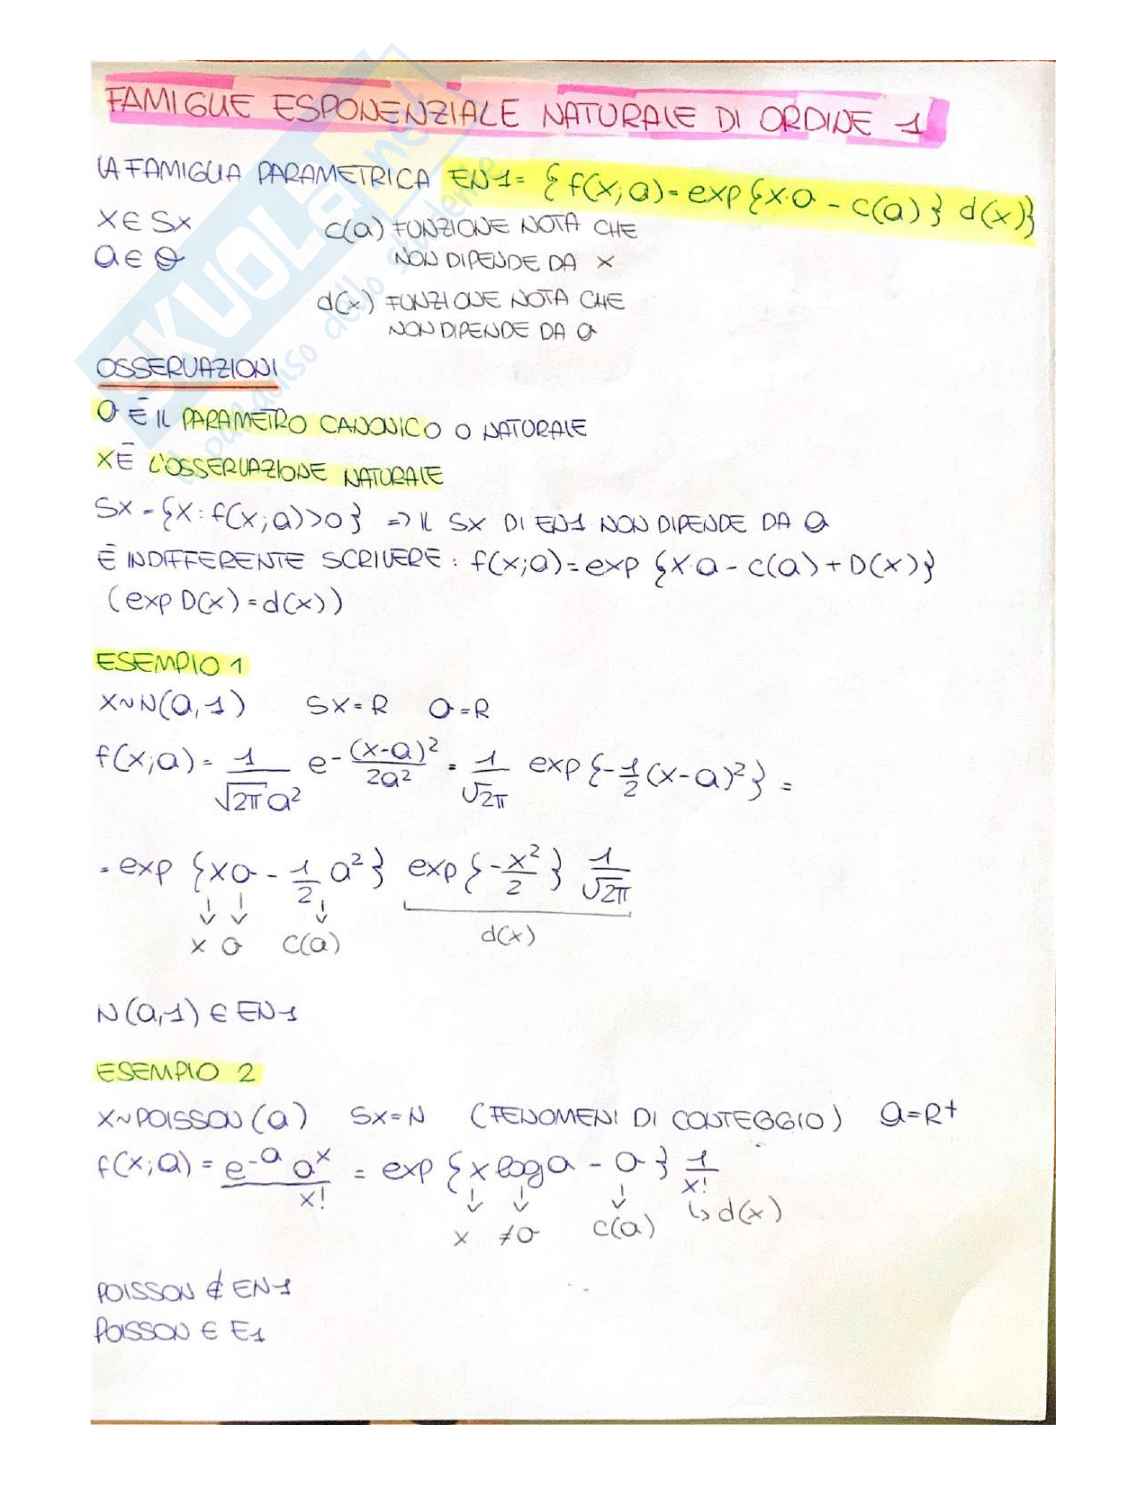 FAMIGLIE ESPONENZIALE NATURALE DI ORDINE 1
LA FAMIGLIA PARAMETRICA EN1 = { f(x;a) = exp {x·a - c(a)} d(x)}
x ∈ Sx c(a) FUNZIONE NOTA CHE
a ∈ Θ NON DIPENDE DA x
d(x) FUNZIONE NOTA CHE
NON DIPENDE DA a
OSSERVAZIONI
a È IL PARAMETRO CANONICO O NATURALE
x È L'OSSERVAZIONE NATURALE
Sx = {x : f(x;a)>0} => IL Sx DI EN1 NON DIPENDE DA a
È INDIFFERENTE SCRIVERE : f(x;a) = exp {x·a - c(a) + D(x)}
(exp D(x) = d(x))
ESEMPIO 1
X~N(a,1) Sx = R a = R
f(x;a) = 1/√2π a² e^-(x-a)²/2a² = 1/√2π exp {-1/2 (x-a)²} =
= exp {xa - 1/2 a²} exp {-x²/2} 1/√2π
x a c(a) d(x)
N(a,1) ∈ EN1
ESEMPIO 2
X~POISSON(a) Sx = N (FENOMENI DI CONTEGGIO) a = R+
f(x;a) = e^-a a^x / x! = exp {x log a - a} 1/x!
x ≠a c(a) ↳ d(x)
POISSON ∉ EN1
POISSON ∈ E1
SKUOLA.net
il paradiso dello studente